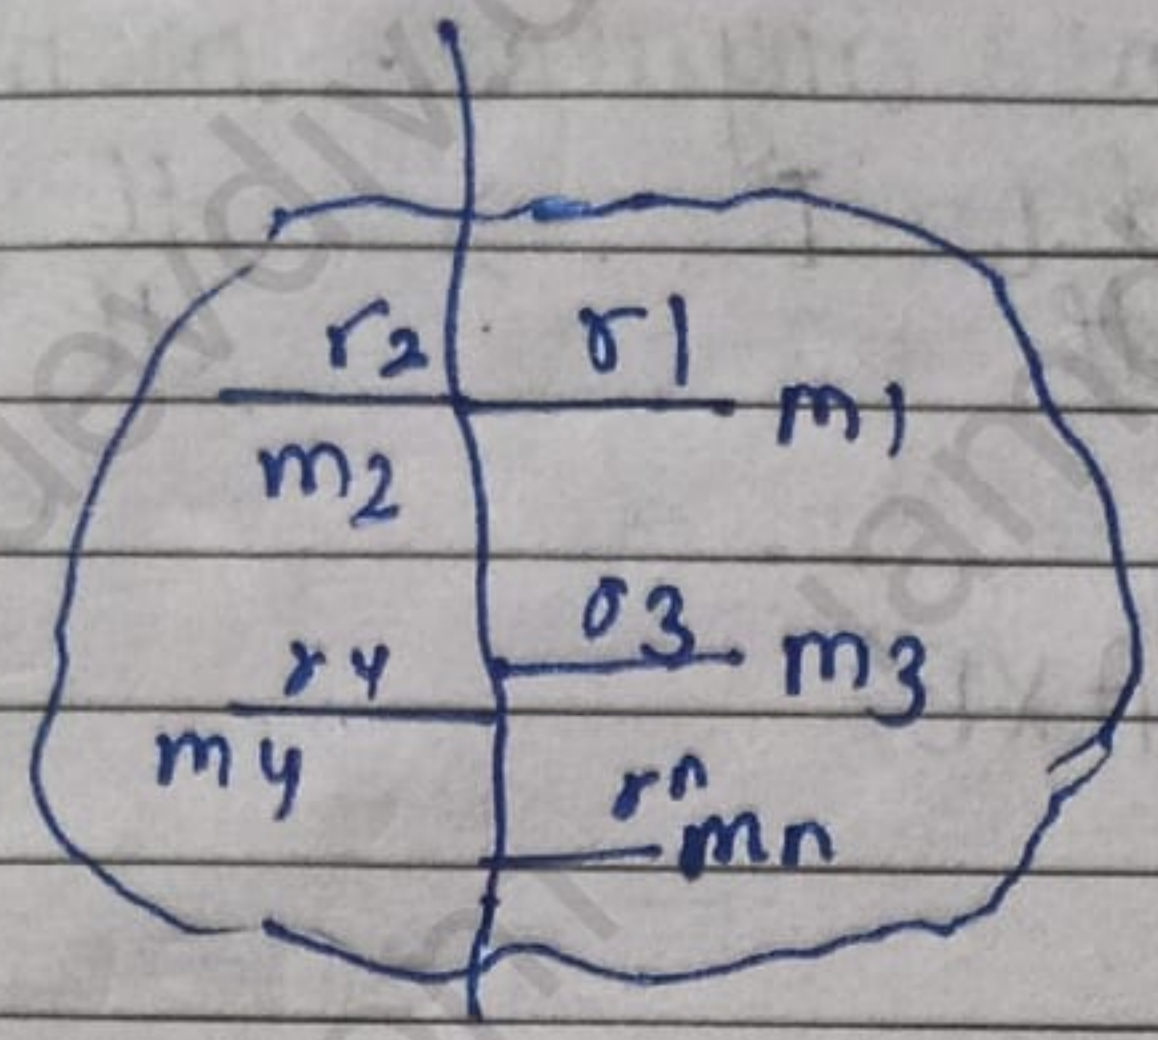 r2 r1
m1
m2
r3
m3
r4
m4
rn
mn